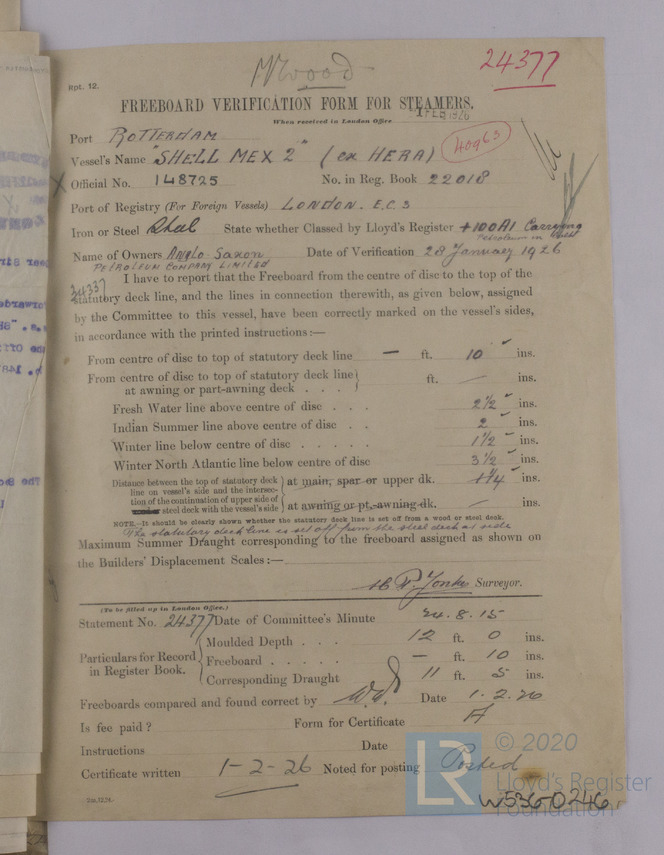 Rpt. 12.
Wood
24377
FREEBOARD VERIFICATION FORM FOR STEAMERS.
When received in London Office 1 FEB 1926
Port ROTTERDAM
40963
Vessel's Name "SHELL MEX 2" (ex HERA)
Official No. 148725 No. in Reg. Book 22018
Port of Registry (For Foreign Vessels) LONDON. E.C.3
Iron or Steel Steel State whether Classed by Lloyd's Register +100A1 Carrying
Petroleum in Bulk
Name of Owners Anglo-Saxon Date of Verification 28 January 1926
PETROLEUM COMPANY LIMITED
I have to report that the Freeboard from the centre of disc to the top of the
24337
statutory deck line, and the lines in connection therewith, as given below, assigned
by the Committee to this vessel, have been correctly marked on the vessel's sides,
in accordance with the printed instructions:—
From centre of disc to top of statutory deck line — ft. 10 ins.
From centre of disc to top of statutory deck line
at awning or part-awning deck . . . ft. — ins.
Fresh Water line above centre of disc . . . 2 1/2 ins.
Indian Summer line above centre of disc . . 2 ins.
Winter line below centre of disc . . . . . 1 1/2 ins.
Winter North Atlantic line below centre of disc 3 1/2 ins.
Distance between the top of statutory deck
line on vessel's side and the intersec-
tion of the continuation of upper side of
steel deck with the vessel's side
at main, spar or upper dk. 1 1/4 ins.
at awning or pt.-awning dk. — ins.
NOTE.—It should be clearly shown whether the statutory deck line is set off from a wood or steel deck.
The statutory deck line is set off from the steel deck at side
Maximum Summer Draught corresponding to the freeboard assigned as shown on
the Builders' Displacement Scales:—
Surveyor.
(To be filled up in London Office.)
Statement No. 24377 Date of Committee's Minute 24.8.15
Particulars for Record
in Register Book.
Moulded Depth . . . 12 ft. 0 ins.
Freeboard . . . . . — ft. 10 ins.
Corresponding Draught 11 ft. 5 ins.
Freeboards compared and found correct by Date 1.2.26
Is fee paid? Form for Certificate A
Instructions Date
Certificate written 1-2-26 Noted for posting Posted
2m,12,24.
LR © 2020
Lloyd's Register
Foundation
W536-0246